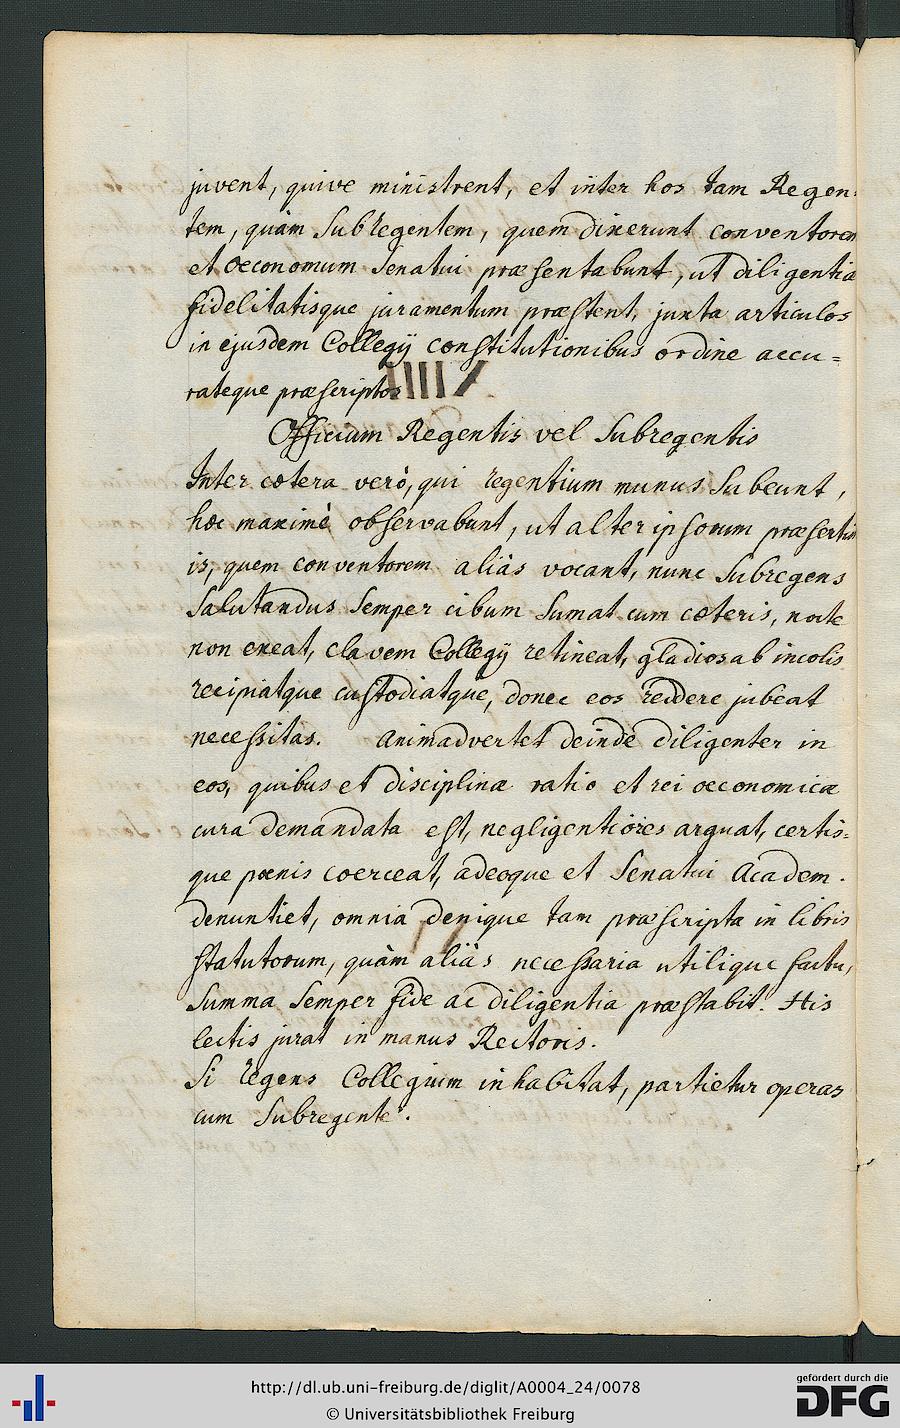 juvent, quive ministrent, et inter hos tam Regen=
tem, quàm Subregentem, quem dixerunt conventorem
et oeconomum Senatui præsentabunt, ut diligentiæ
fidelitatisque juramentum præstent, juxta articulos
in ejusdem Collegij constitutionibus ordine accu=
rateque præscriptos
Officium Regentis vel Subregentis
Inter cætera verò, qui regentium munus subeunt,
hoc maximè observabunt, ut alter ipsorum præsertim
is, quem conventorem aliàs vocant, nunc Subregens
Salutandus semper cibum sumat cum cæteris, nocte
non exeat, clavem Collegij retineat, gladios ab incolis
recipiatque custodiatque, donec eos reddere jubeat
necessitas. Animadvertet deinde diligenter in
eos, quibus et disciplinæ ratio et rei oeconomicæ
cura demandata est, negligentiores arguat, certis=
que pœnis coerceat, adeoque et Senatui Academ.
denuntiet, omnia denique tam præscripta in libris
statutorum, quàm aliàs necessaria utilique factu,
summa semper fide ac diligentia præstabit. His
lectis jurat in manus Rectoris.
Si regens Collegium inhabitat, partietur operas
cum Subregente.
http://dl.ub.uni-freiburg.de/diglit/A0004_24/0078
© Universitätsbibliothek Freiburg
gefördert durch die
DFG